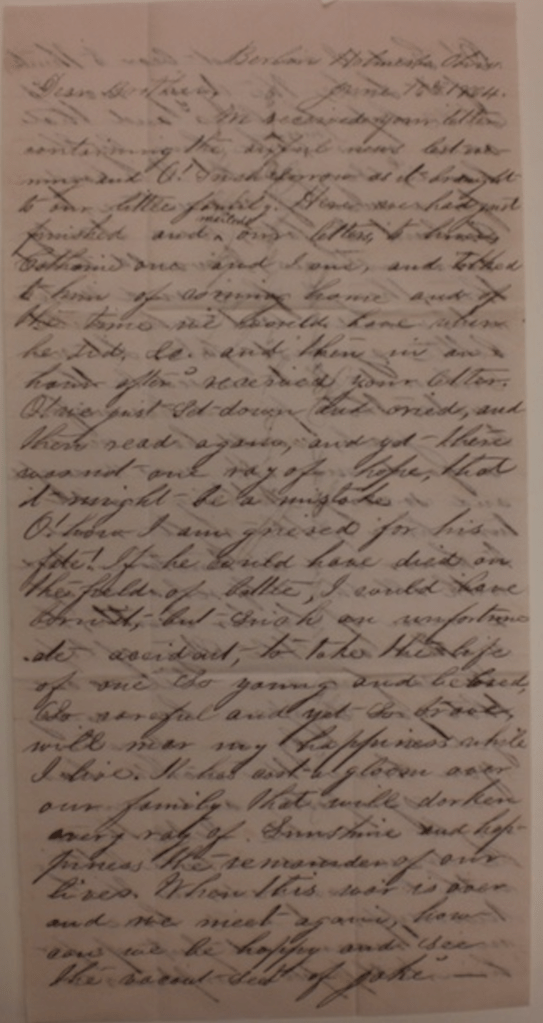 Berlin Holmes Co. Ohio.
Dear Brother, June 15th 1864.
We received your letter
containing the awful news last eve-
ning and O! Such sorrow as it brought
to our little family. Here we had just
finished and mailed our letters, to him,
Catharine one and I one, and talked
to him of coming home and of
the time we would have when
he did, So. and then in an
hour after received your letter.
O! we just Set down and cried, and
then read again, and yet there
was not one ray of hope, that
it might be a mistake
O! how I am grieved for his
fate! If he could have died on
the field of battle, I could have
borne it, but Such an unfortuna
ate accident, to take the life
of one So young and beloved,
So careful and yet So brave,
will mar my happiness while
I live. It has cast a gloom over
our family that will darken
every ray of Sunshine and hap-
piness the remainder of our
lives. When this war is over
and we meet again, how
can we be happy and see
the vacant seat of Jake —